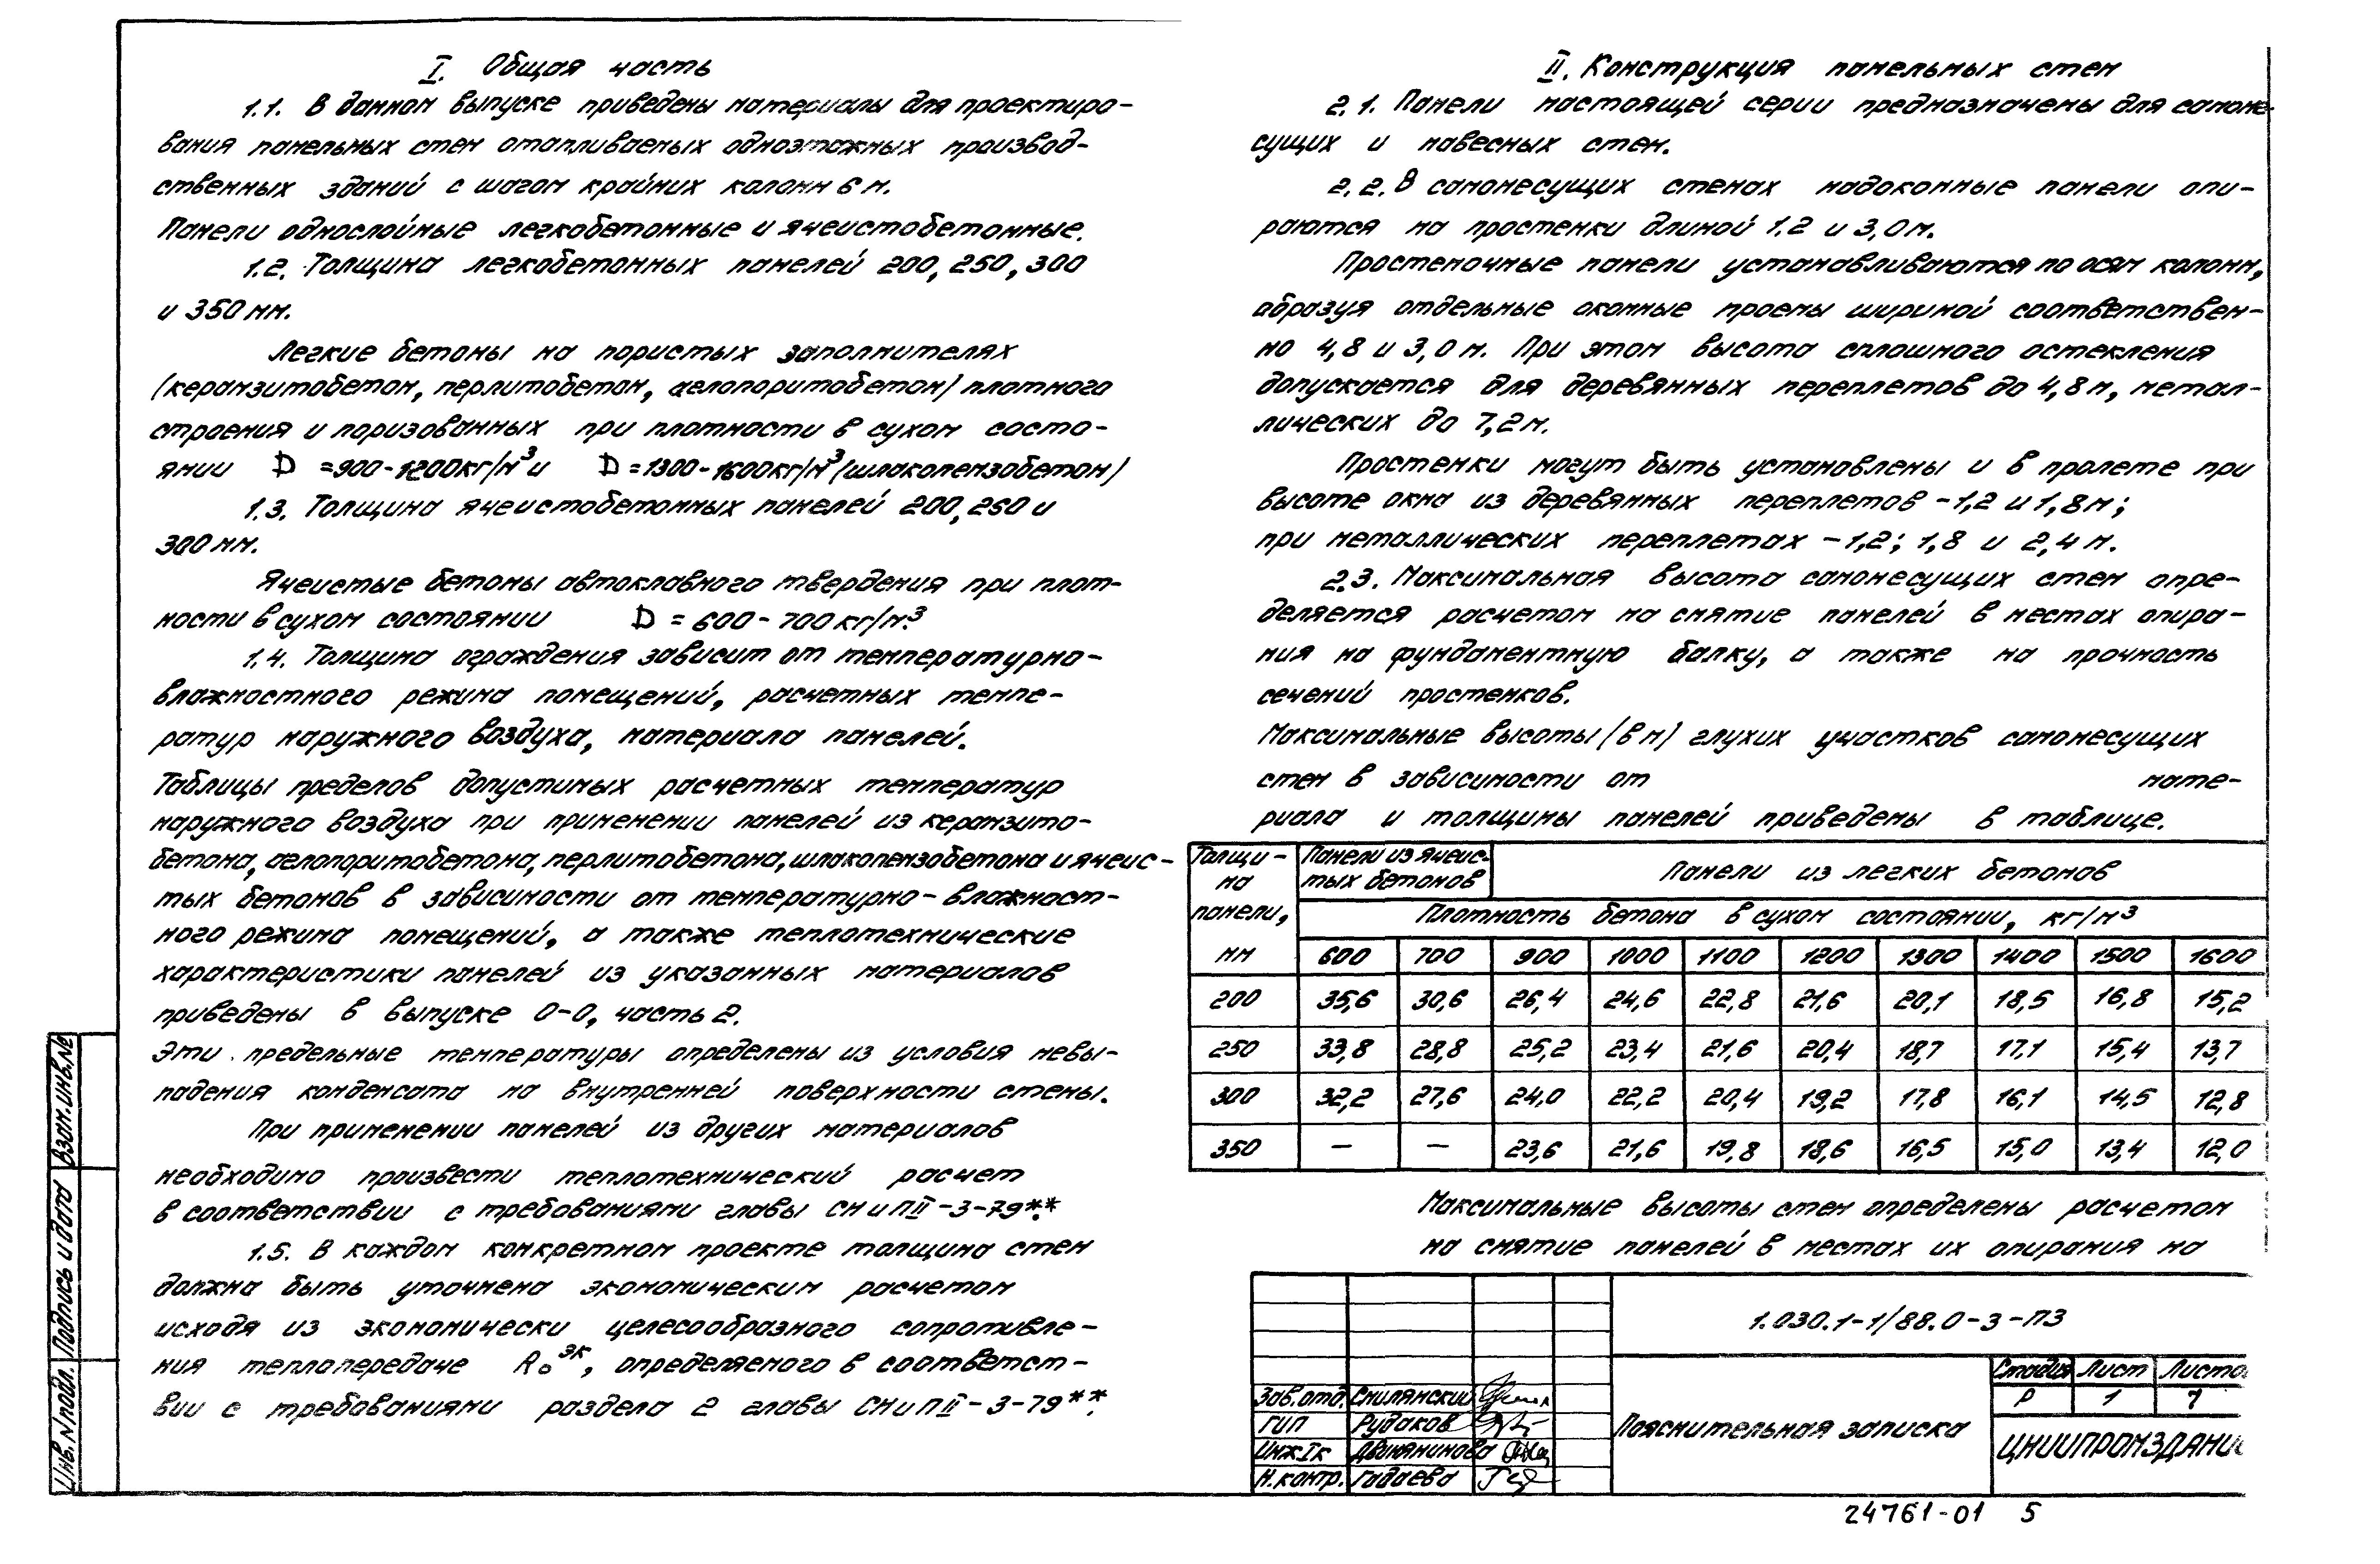 I. Общая часть
1.1. В данном выпуске приведены материалы для проектиро-
вания панельных стен отапливаемых одноэтажных производ-
ственных зданий с шагом крайних колонн 6 м.
Панели однослойные легкобетонные и ячеистобетонные.
1.2. Толщина легкобетонных панелей 200, 250, 300
и 350 мм.
Легкие бетоны на пористых заполнителях
(керамзитобетон, перлитобетон, аглопоритобетон) плотного
строения и поризованных при плотности в сухом состо-
янии D =900-1200кг/м³ и D =1300-1600кг/м³ (шлакопемзобетон)
1.3. Толщина ячеистобетонных панелей 200, 250 и
300 мм.
Ячеистые бетоны автоклавного твердения при плот-
ности в сухом состоянии D = 600-700 кг/м³
1.4. Толщина ограждения зависит от температурно-
влажностного режима помещений, расчетных темпе-
ратур наружного воздуха, материала панелей.
Таблицы пределов допустимых расчетных температур
наружного воздуха при применении панелей из керамзито-
бетона, аглопоритобетона, перлитобетона, шлакопемзобетона и ячеис-
тых бетонов в зависимости от температурно-влажност-
ного режима помещений, а также теплотехнические
характеристики панелей из указанных материалов
приведены в выпуске 0-0, часть 2.
Эти предельные температуры определены из условия невы-
падения конденсата на внутренней поверхности стены.
При применении панелей из других материалов
необходимо произвести теплотехнический расчет
в соответствии с требованиями главы СНиП II-3-79**.
1.5. В каждом конкретном проекте толщина стен
должна быть уточнена экономическим расчетом
исходя из экономически целесообразного сопротивле-
ния теплопередаче R₀ᵉᵏ, определяемого в соответст-
вии с требованиями раздела 2 главы СНиП II-3-79**.
II. Конструкция панельных стен
2.1. Панели настоящей серии предназначены для самоне-
сущих и навесных стен.
2.2. В самонесущих стенах надоконные панели опи-
раются на простенки длиной 1.2 и 3,0 м.
Простеночные панели устанавливаются по осям колонн,
образуя отдельные оконные проемы шириной соответствен-
но 4,8 и 3,0 м. При этом высота сплошного остекления
допускается для деревянных переплетов до 4,8 м, метал-
лических до 7,2 м.
Простенки могут быть установлены и в пролете при
высоте окна из деревянных переплетов -1,2 и 1,8 м;
при металлических переплетах -1,2; 1,8 и 2,4 м.
2.3. Максимальная высота самонесущих стен опре-
деляется расчетом на смятие панелей в местах опира-
ния на фундаментную балку, а также на прочность
сечений простенков.
Максимальные высоты (в м) глухих участков самонесущих
стен в зависимости от мате-
риала и толщины панелей приведены в таблице.
Толщи-на панели, мм | Панели из ячеис-тых бетонов | Панели из легких бетонов
Плотность бетона в сухом состоянии, кг/м³
600 700 900 1000 1100 1200 1300 1400 1500 1600
200 35,6 30,6 26,4 24,6 22,8 21,6 20,1 18,5 16,8 15,2
250 33,8 28,8 25,2 23,4 21,6 20,4 18,7 17,1 15,4 13,7
300 32,2 27,6 24,0 22,2 20,4 19,2 17,8 16,1 14,5 12,8
350 — — 23,6 21,6 19,8 18,6 16,5 15,0 13,4 12,0
Максимальные высоты стен определены расчетом
на смятие панелей в местах их опирания на
1.030.1-1/88.0-3-ПЗ
Зав.отд. Смилянский
ГИП Рудаков
Инж Iк Двинянинова
Н.контр. Гадаева
Пояснительная записка
Стадия Лист Листо
Р 1 7
ЦНИИПРОМЗДАНИ
24761-01 5
Взам.инв.№
Подпись и дата
Инв. N подл.